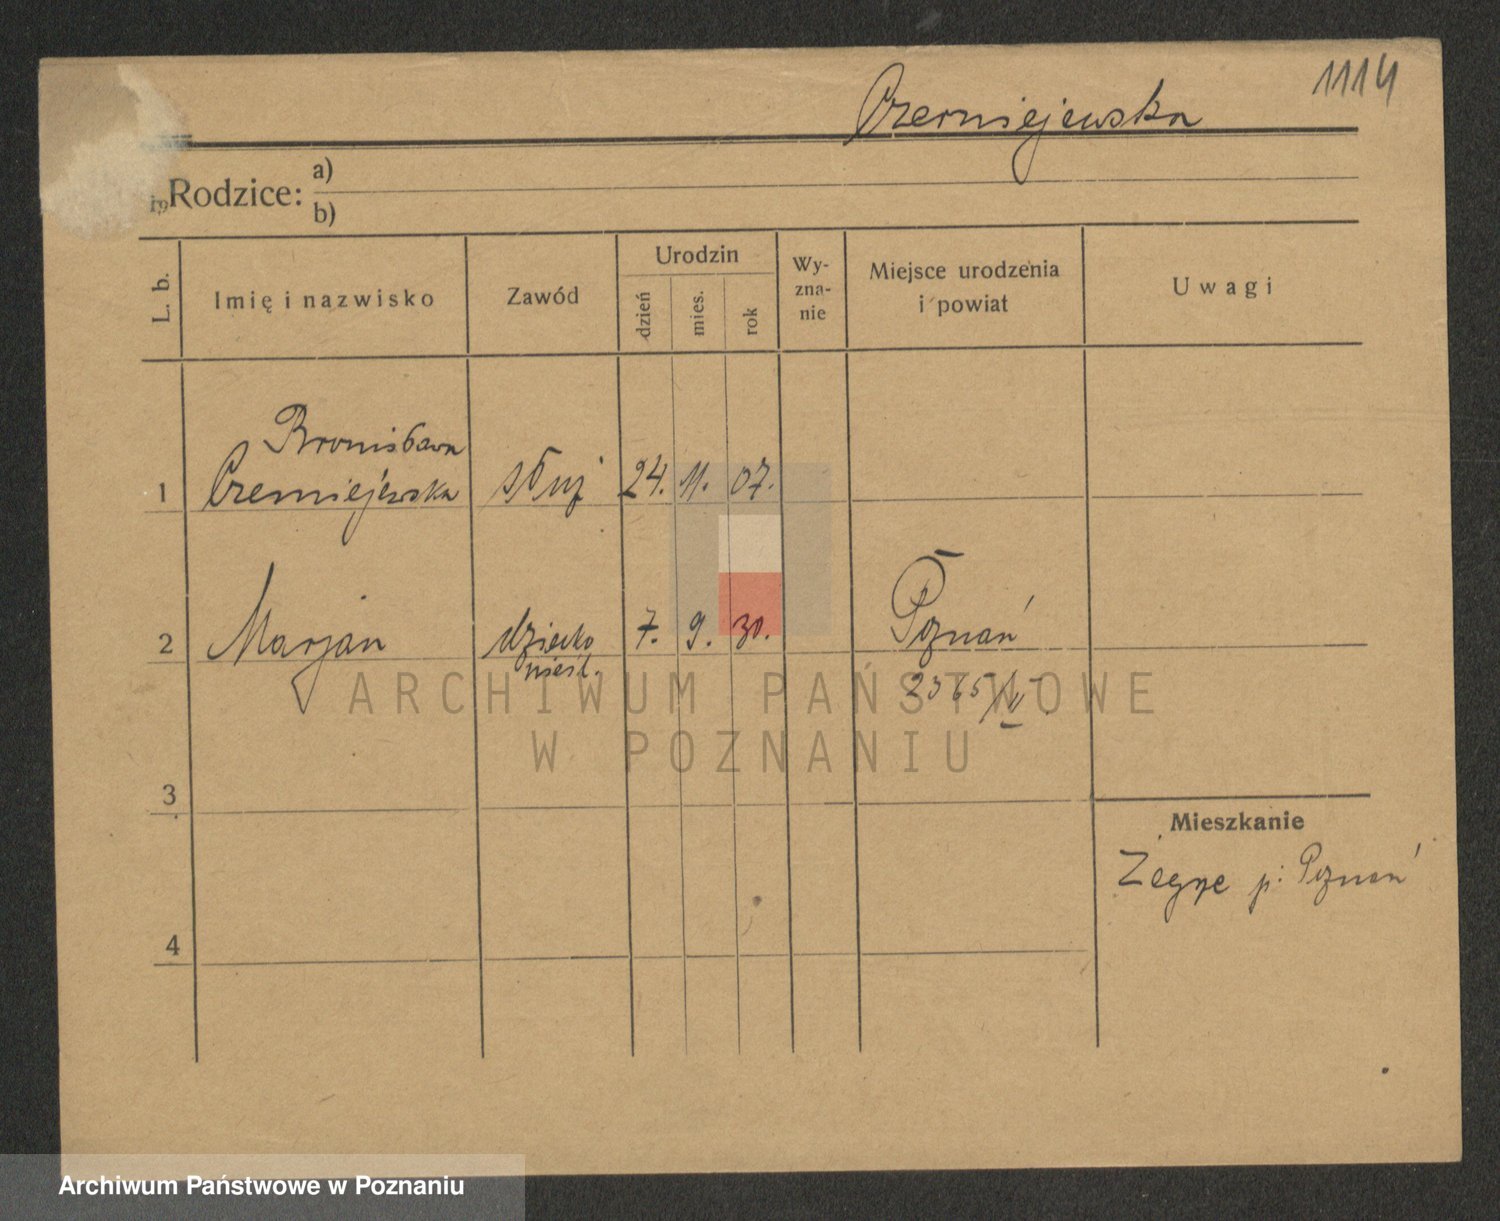 1114
Czerniejewska
Rodzice: a)
b)
L. b.
Imię i nazwisko
Zawód
Urodzin
dzień
mies.
rok
Wy-
zna-
nie
Miejsce urodzenia
i powiat
Uwagi
Bronisława
1 Czerniejewska służ 24. 11. 07.
2 Marjan dziecko 7. 9. 30. Poznań
nieśl. 2365/V
ARCHIWUM PAŃSTWOWE
W POZNANIU
3
Mieszkanie
Żegrze p. Poznań
4
Archiwum Państwowe w Poznaniu